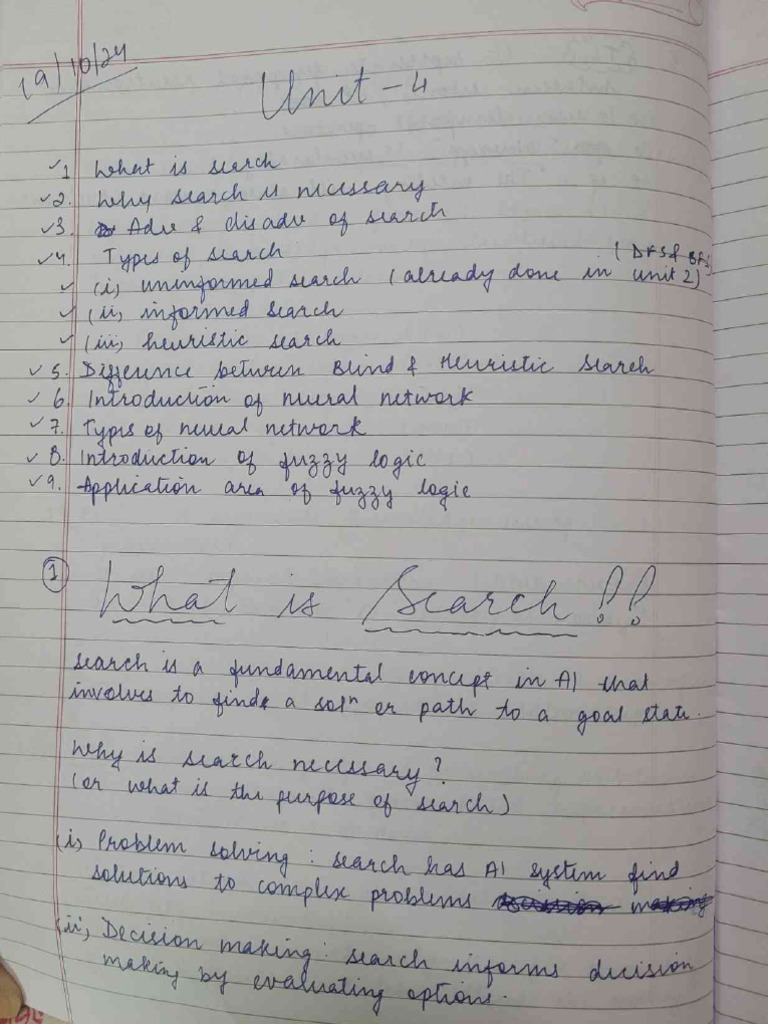 19/10/24
Unit - 4
✓1 What is search
✓2. Why search is necessary
✓3. Adv & disadv of search
✓4. Types of search
(DFS & BFS)
✓ (i) uninformed search (already done in unit 2)
✓ (ii) informed search
✓ (iii) heuristic search
✓5. Difference between Blind & Heuristic Search
✓6. Introduction of neural network
✓7. Types of neural network
✓8. Introduction of fuzzy logic
✓9. Application area of fuzzy logic
① What is Search!!
search is a fundamental concept in AI that
involves to find a solⁿ or path to a goal state.
Why is search necessary?
(or what is the purpose of search)
(i) Problem solving : search has AI system find
solutions to complex problems
(ii) Decision making : search informs decision
making by evaluating options.